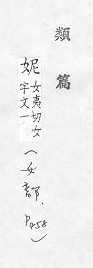 類篇
妮 女夷切女
字文一
(女部,
P458)